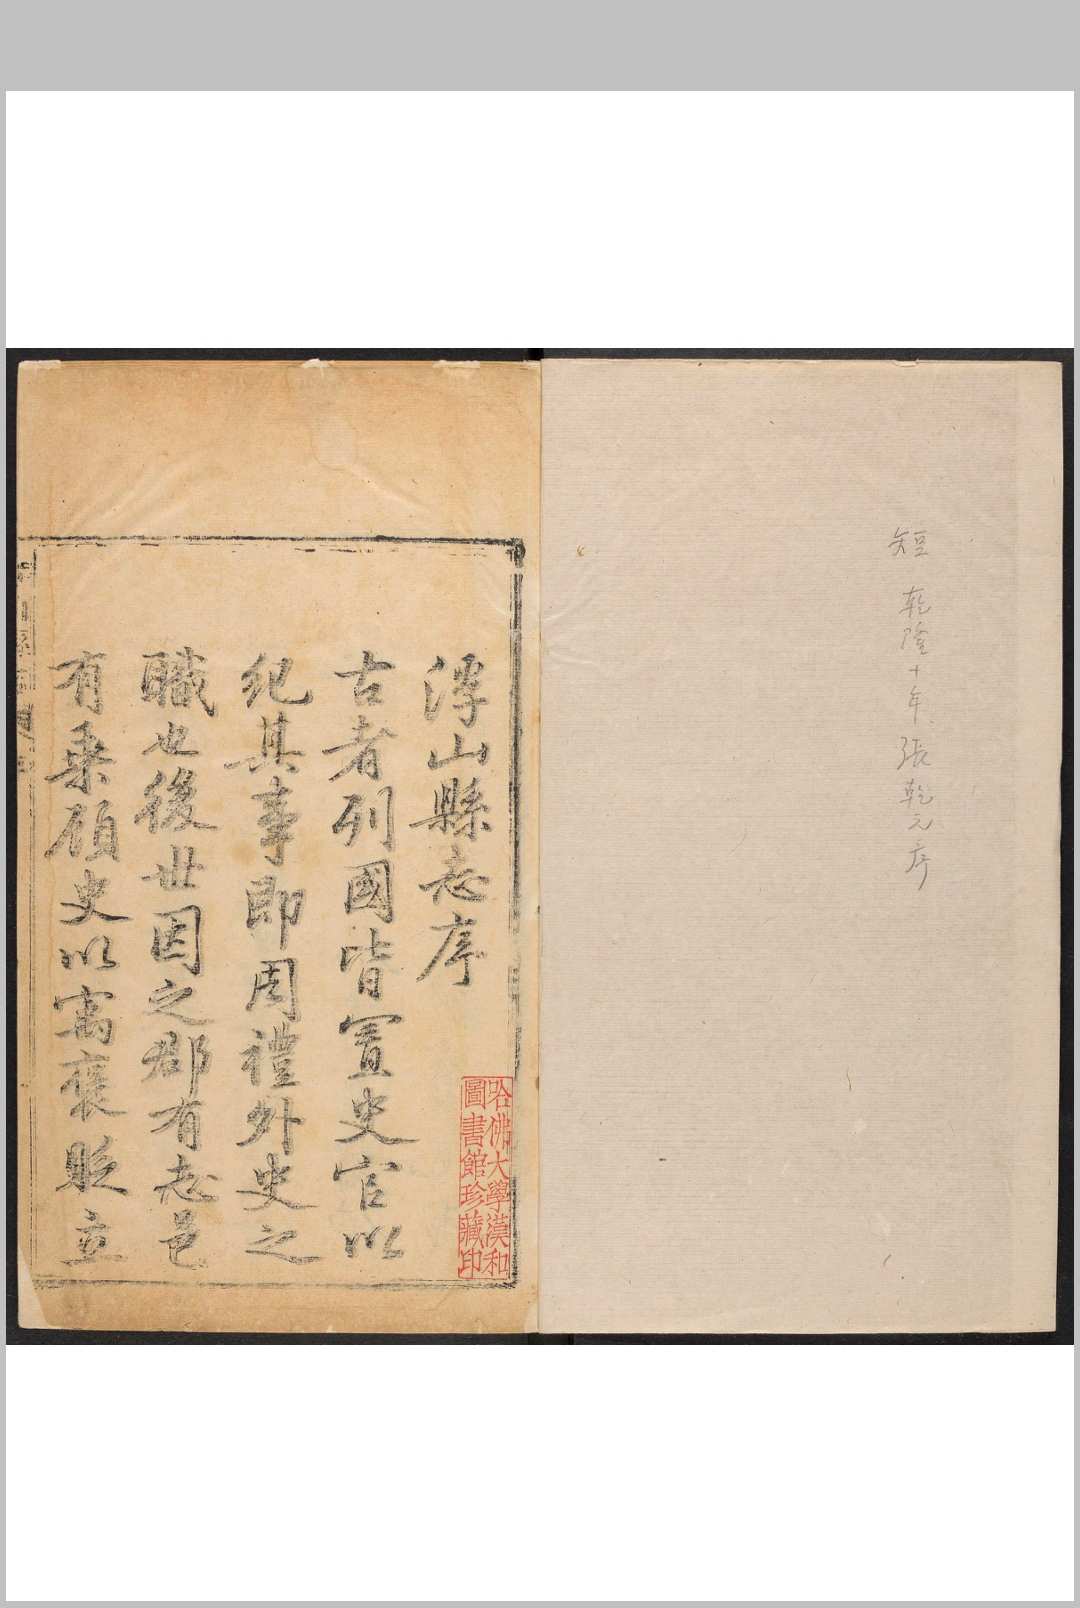 短 乾隆十年 張乾元序
浮山縣志序
古者列國皆置史官以
紀其事即周禮外史之
職也後世因之郡有志邑
有乘顧史以寓褒貶立
哈佛大學漢和
圖書館珍藏印